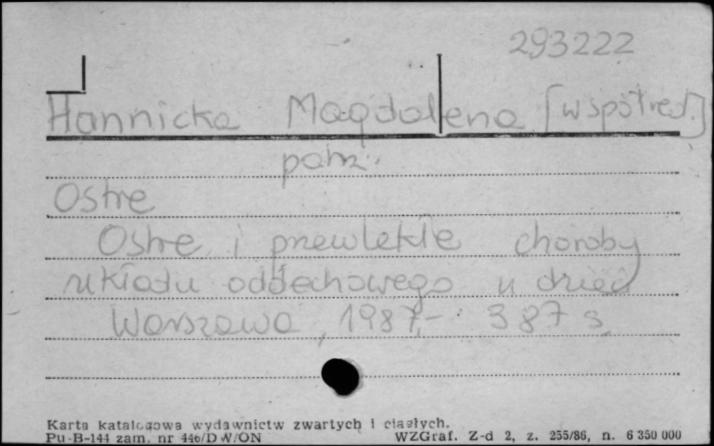 293222
Hannicka Magdalena [współred.]
patrz:
Ostre
Ostre i przewlekłe choroby
układu oddechowego u dzieci
Warszawa, 1987,- 387 s
Karta katalogowa wydawnictw zwartych i ciągłych.
Pu-B-144 zam. nr 446/DW/ON WZGraf. Z-d 2, z. 255/86, n. 6 350 000